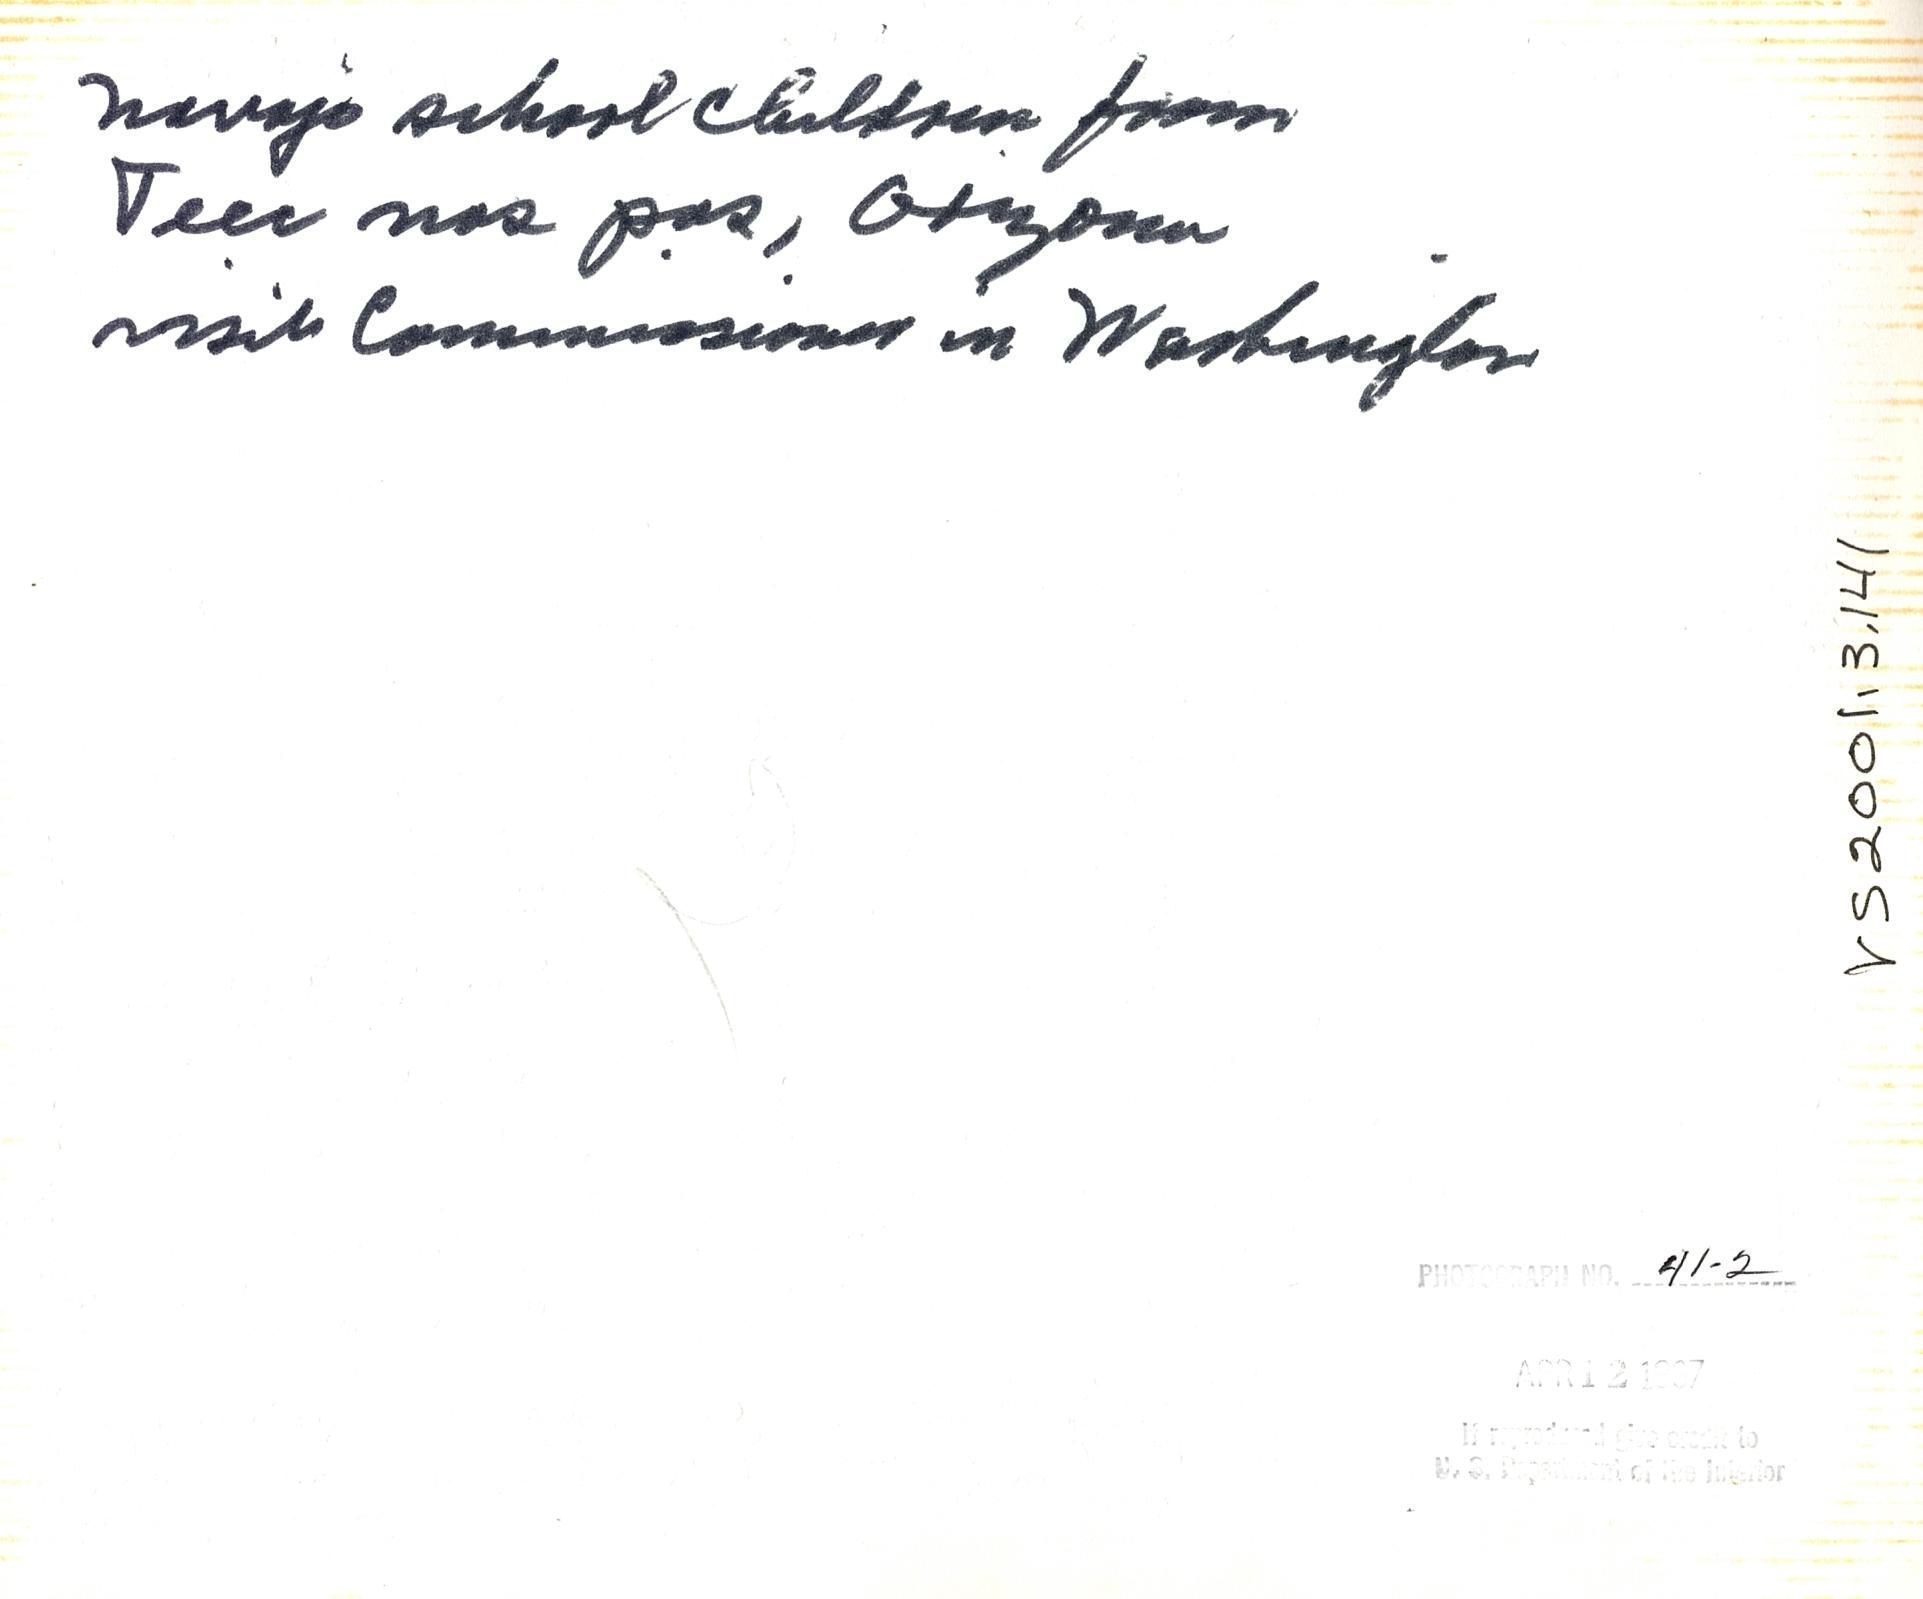 Navajo school children from
Teec nos pos, Arizona
visit Commissioner in Washington
VS2001.13.141
PHOTOGRAPH NO. 41-2
APR 12 1967
If reproduced give credit to
U. S. Department of the Interior